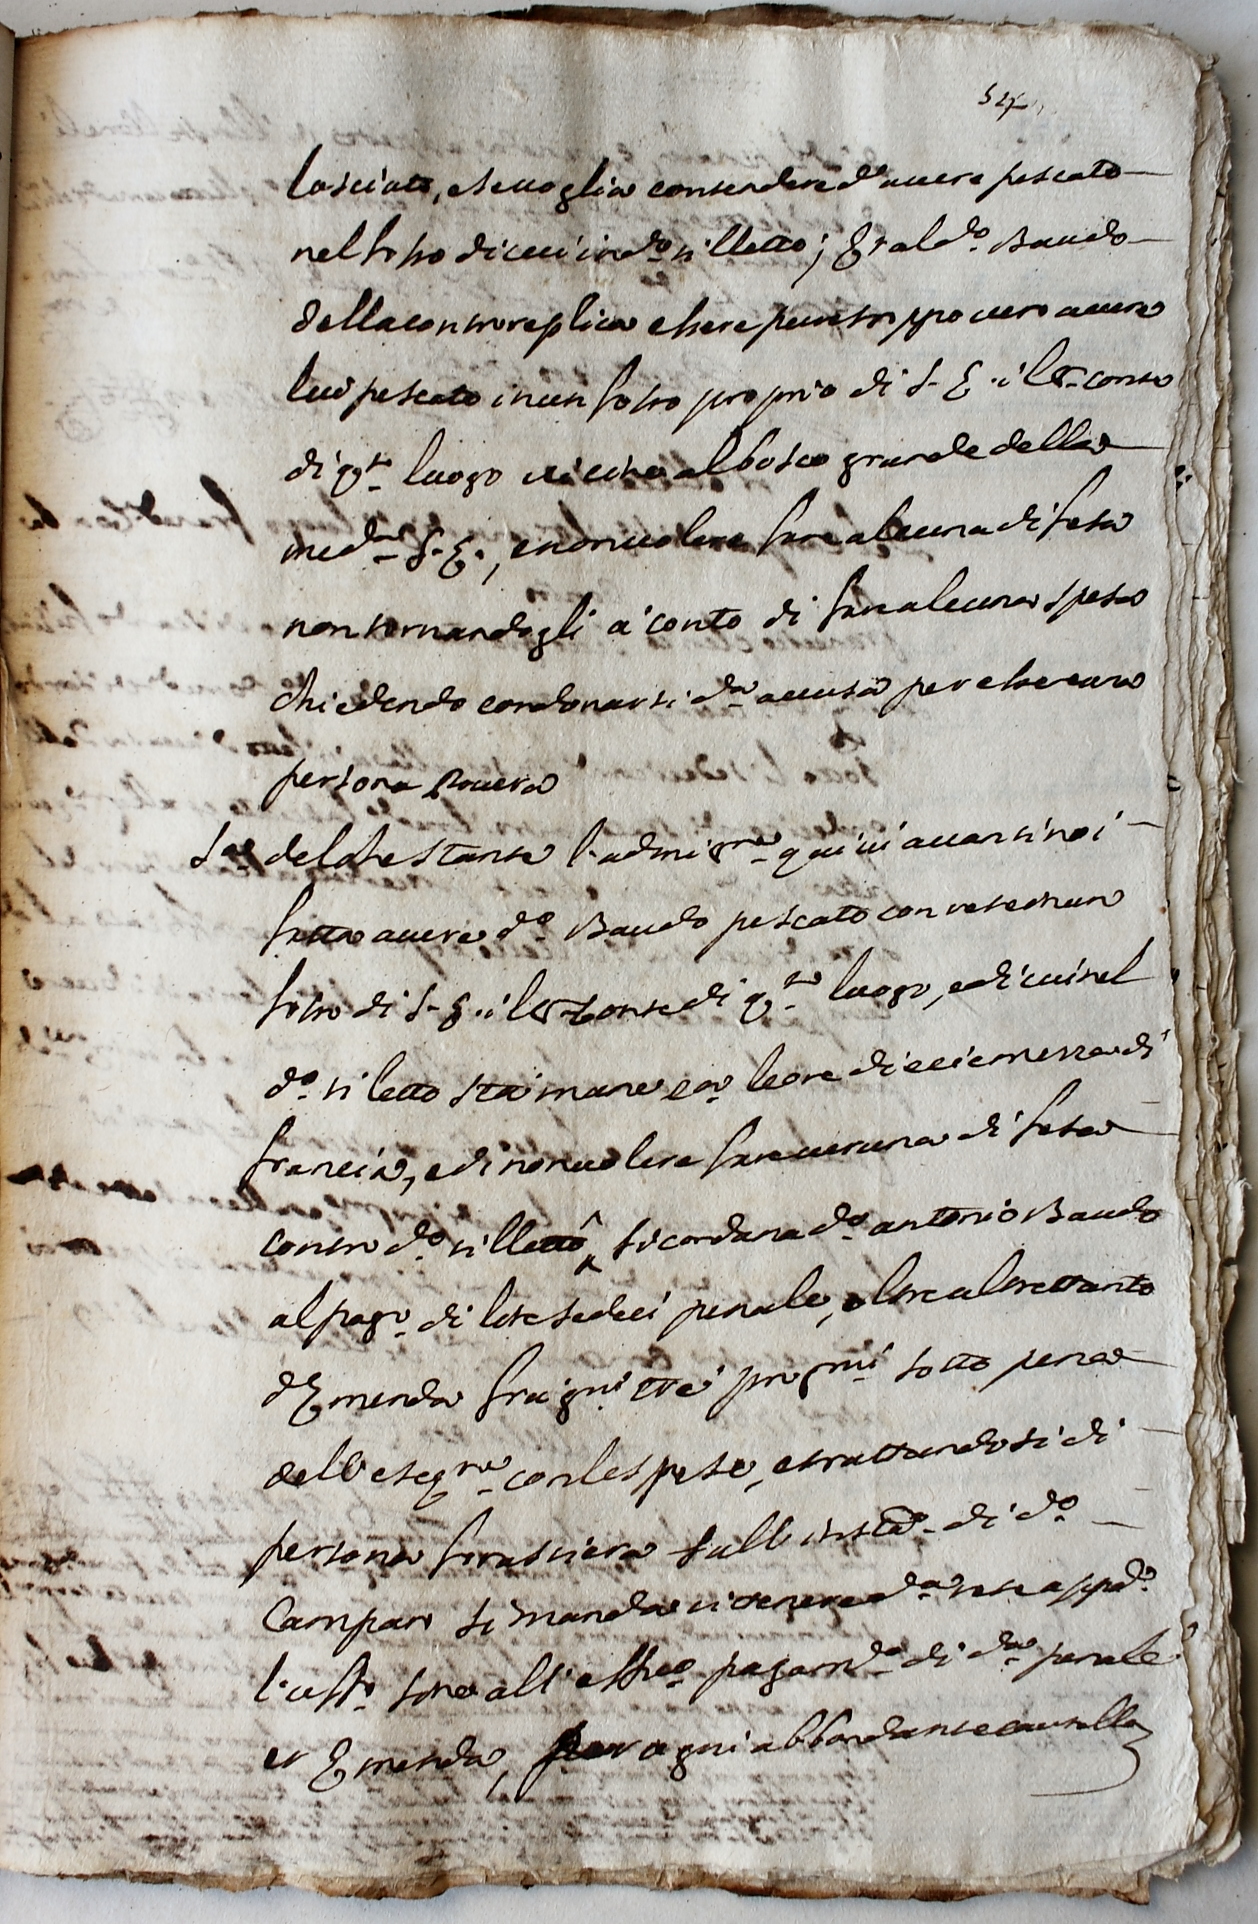 lasciato, e se voglia contendere d'avere pescato
nel fosso di cui in do. viletto; Et al do. Baudo
della contro replica essere pur troppo vero avere
lui pescato in un fosso proprio di S. E. il Sr. Conte
di qto. luogo vicino al bosco grande della
medma. S. E., e non volere fare alcuna difesa
non tornandogli a' conto di fare alcuna spesa
chiedendo condonarsi da. accusa per essere una
persona Povera
delostante l'admigne. quivi avanti noi
fatta avere do. Baudo pescato con rete in un
fosso di S. E. il Sr. Conte di qto. luogo, e di cui nel
do. viletto sta mane le ore dieci e mezza di
francia, e di non volere fare veruna difesa
contro do. villetto si condana do. antonio Baudo
al pago. di lire sedeci penale, oltre altrettanto
d'Emenda fra gni. tre' progmi. sotto pena
dell'esegne. con le spese, e trattandosi di
persona forastiera sull'insta. di do.
Camparo si manda ritenere da. rete appo.
l'uffo. sino all'effvo. pagamto. di da. penale
et Emenda, per ogni abbondante cautella